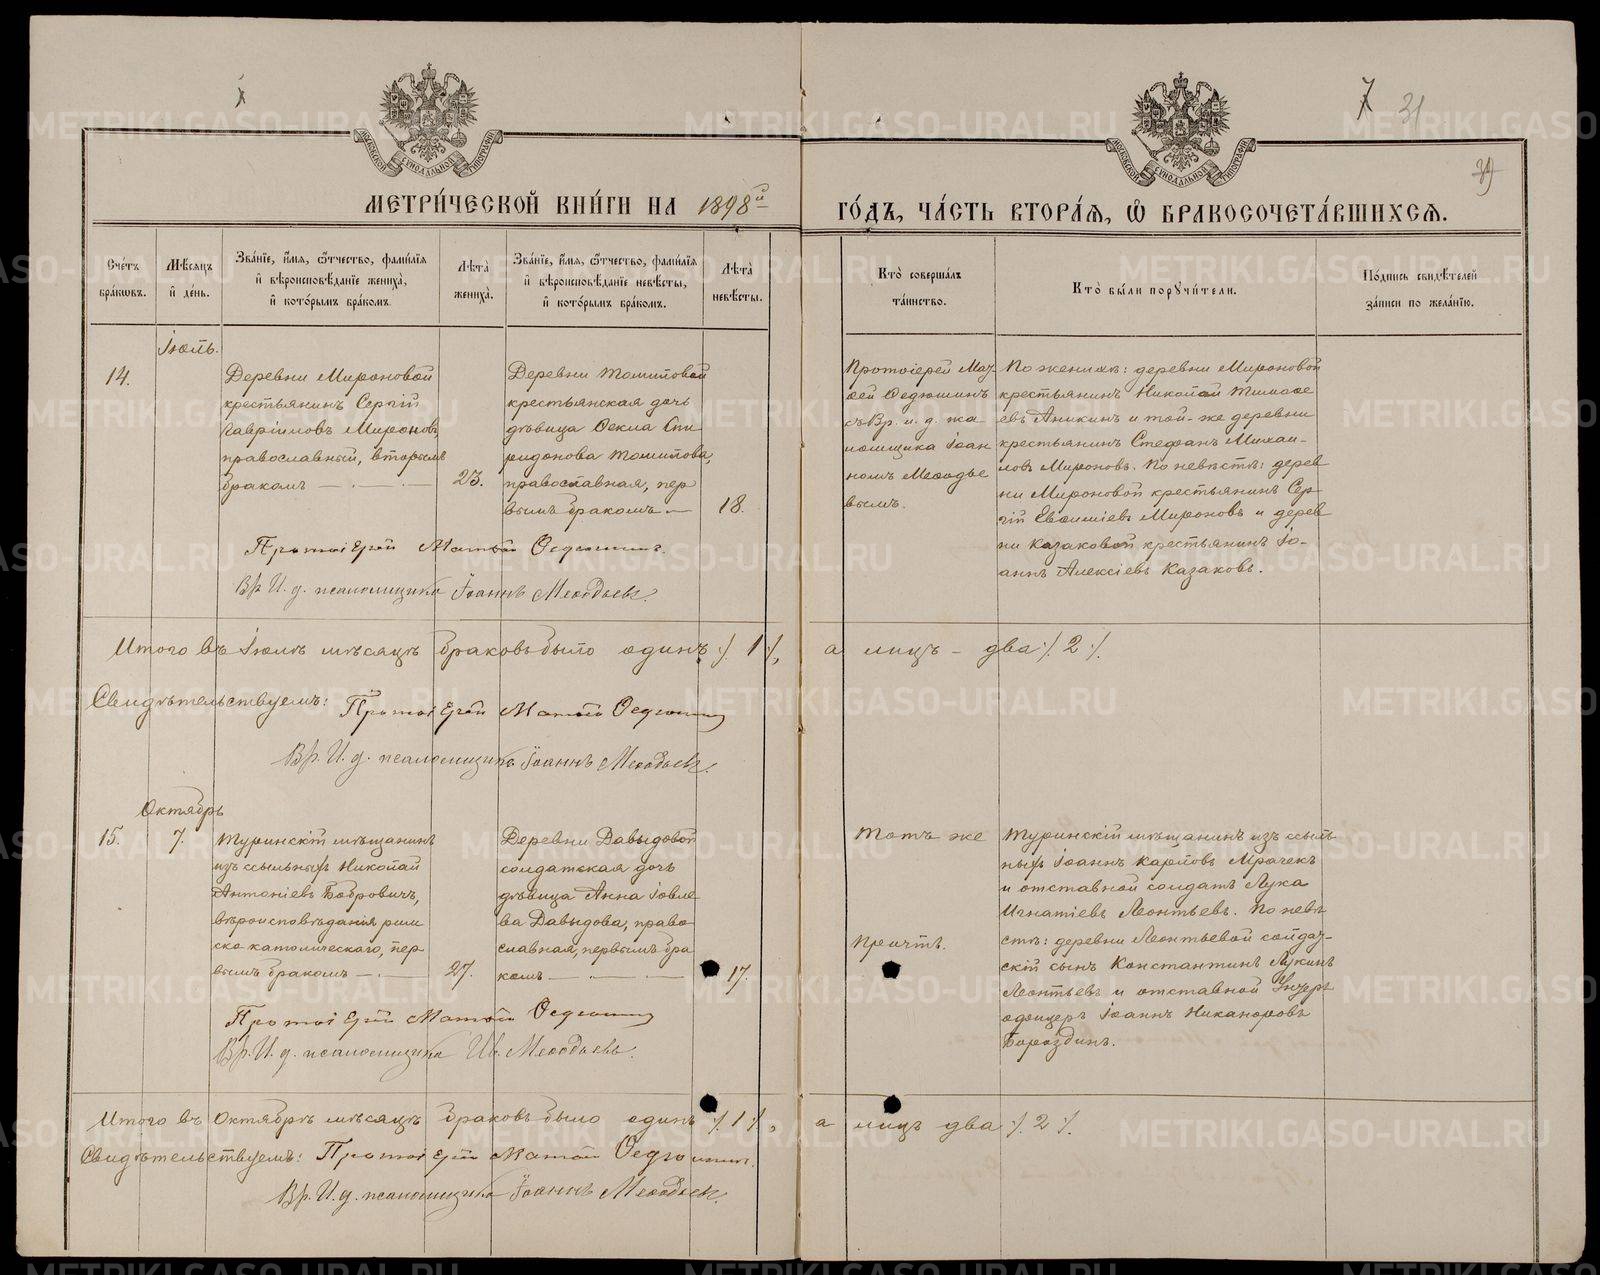 7 31
39
МОСКОВСКОЙ СѴНОДАЛЬНОЙ ТИПОГРАФІИ
МОСКОВСКОЙ СѴНОДАЛЬНОЙ ТИПОГРАФІИ
МЕТРИ́ЧЕСКОЙ КНИ́ГИ НА 1898й ГО́ДЪ, ЧА́СТЬ ВТОРА́Я, Ѡ҆ БРАКОСОЧЕТА́ВШИХСЯ.
Сче́тъ бра́кѡвъ.
Мѣ́сяцъ и҆ де́нь.
Зва́нїе, и҆́мя, ѻ҆́тчество, фами́лїя и҆ вѣроисповѣ́данїе жениха̀, и҆ кото́рымъ бра́комъ.
Лѣ́та жениха̀.
Зва́нїе, и҆́мя, ѻ҆́тчество, фами́лїя и҆ вѣроисповѣ́данїе невѣ́сты, и҆ кото́рымъ бра́комъ.
Лѣ́та невѣ́сты.
Кто̀ соверша́лъ та́инство.
Кто̀ бы́ли порꙋчи́тели.
По́дпись свидѣ́телей за́писи по жела́нїю.
Іюль.
14.
Деревни Мироновой
крестьянинъ Сергій
Гавріиловъ Мироновъ,
православный, вторымъ
бракомъ
23.
Деревни Томиловой
крестьянская дочь
дѣвица Ѳекла Спи
ридонова Томилова,
православная, пер
вымъ бракомъ
18.
Протоіерей Мат
ѳей Ѳедюшинъ
съ Вр. и. д. пса
ломщика Іоан
номъ Меѳодіе
вымъ.
По женихѣ: деревни Мироновой
крестьянинъ Николай Тимоѳе
евъ Аникинъ и той-же деревни
крестьянинъ Стефанъ Михаи-
ловъ Мироновъ. По невѣстѣ: дерев
ни Мироновой крестьянинъ Сер-
гій Евѳиміевъ Мироновъ и дерев
ни Казаковой крестьянинъ Іо-
аннъ Алексіевъ Казаковъ.
Протоіерей Матѳей Ѳедюшинъ.
Вр. И. д. псаломщика Іоаннъ Меѳодьевъ.
Итого въ Іюлѣ мѣсяцѣ браковъ было одинъ ⁒ 1 ⁒, а лицъ – два ⁒ 2 ⁒.
Свидѣтельствуемъ: Протоіерей Матѳей Ѳедюшинъ
Вр. И. д. псаломщика Іоаннъ Меѳодьевъ.
Октябрь
15.
7.
Туринскій мѣщанинъ
изъ ссыльныхъ Николай
Антоніевъ Бобровичъ,
вѣроисповѣданія рим
ско-католическаго, пер
вымъ бракомъ
27.
Деревни Давыдовой
солдатская дочь
дѣвица Анна Іовле
ва Давыдова, право
славная, первымъ бра
комъ
17.
Тотъ же
Причтъ.
Туринскій мѣщанинъ изъ ссыль
ныхъ Іоаннъ Карловъ Мрачек
и отставной солдатъ Лука
Игнатіевъ Леонтьевъ. По невѣ
стѣ: деревни Леонтьевой солдат-
скій сынъ Константинъ Лукинъ
Леонтьевъ и отставной Унтеръ
офицеръ Іоаннъ Никаноровъ
Бороздинъ.
Протоіерей Матѳей Ѳедюшинъ
Вр. И. д. псаломщика Ив. Меѳодьевъ.
Итого въ Октябрѣ мѣсяцѣ браковъ было одинъ ⁒ 1 ⁒, а лицъ два ⁒ 2 ⁒.
Свидѣтельствуемъ: Протоіерей Матѳей Ѳедюшинъ.
Вр. И. д. псаломщика Іоаннъ Меѳодьевъ.
METRIKI.GASO-URAL.RU